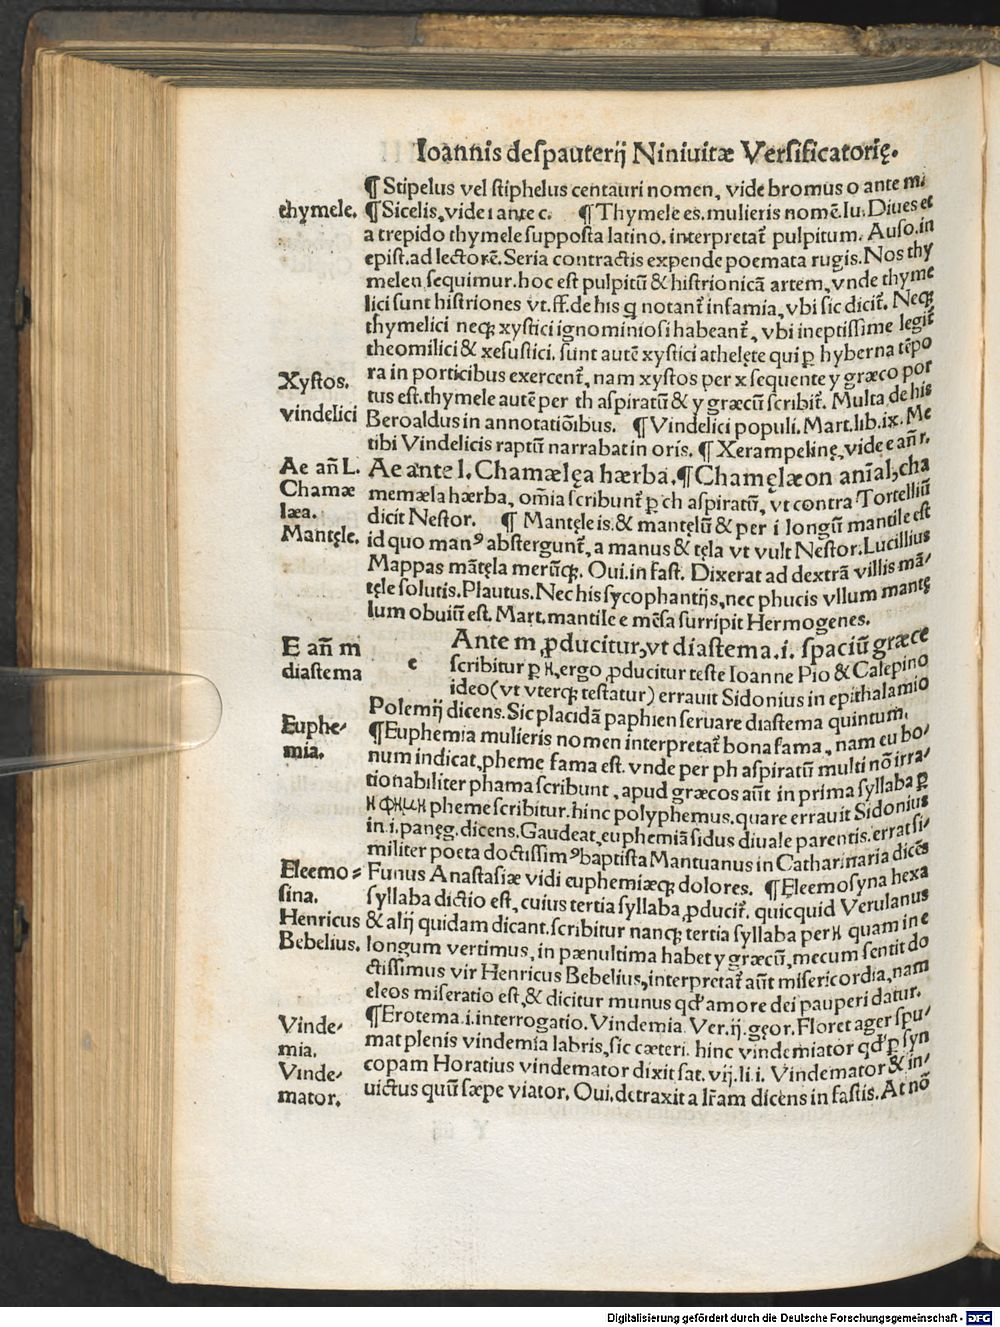 Ioannis despauterij Niniuitæ Versificatorię.
¶ Stipelus vel stiphelus centauri nomen, vide bromus o ante m.
thymele. ¶ Sicelis, vide i ante c. ¶ Thymele es. mulieris nomẽ. Iu. Diues et
a trepido thymele supposta latino. interpretat᷑ pulpitum. Auso. in
epist. ad lectorẽ. Seria contractis expende poemata rugis. Nos thy
melen sequimur. hoc est pulpitũ & histrionicã artem, vnde thyme
lici sunt histriones vt. ff. de his q notant᷑ infamia, vbi sic dicit᷑. Neqꝫ
thymelici neqꝫ xystici ignominiosi habeant᷑, vbi ineptissime legit᷑
theomilici & xesustici. sunt autẽ xystici athelęte qui ꝑ hyberna tẽpo
Xystos. ra in porticibus exercent᷑, nam xystos per x sequente y græco por
tus est. thymele autẽ per th aspiratũ & y græcũ scribit᷑. Multa de his
vindelici Beroaldus in annotatiõibus. ¶ Vindelici populi. Mart. lib. ix. Me
tibi Vindelicis raptũ narrabat in oris. ¶ Xerampelinę, vide e añ r.
Ae añ L. Ae ante l. Chamælęa hærba. ¶ Chamęlæon anĩal, cha
Chamæ memæla hærba, om̃ia scribunt᷑ ꝑ ch aspiratũ, vt contra Tortelliũ
læa. dicit Nestor. ¶ Mantęle is. & mantęlũ & per i longũ mantile est
Mantęle. id quo manꝰ abstergunt᷑, a manus & tęla vt vult Nestor. Lucillius
Mappas mãtęla merũqꝫ. Oui. in fast. Dixerat ad dextrã villis mã⸗
tęle solutis. Plautus. Nec his sycophantijs, nec phucis vllum mantę
lum obuiũ est. Mart. mantile e mẽsa surripit Hermogenes.
E añ m e Ante m ꝓducitur, vt diastema. i. spaciũ græce
diastema scribitur ꝑ н, ergo ꝓducitur teste Ioanne Pio & Calepino
ideo (vt vterqꝫ testatur) errauit Sidonius in epithalamio
Polemij dicens. Sic placidã paphien seruare diastema quintum.
Euphe⸗ ¶ Euphemia mulieris nomen interpretat᷑ bona fama, nam eu bo⸗
mia. num indicat, pheme fama est. vnde per ph aspiratũ multi nõ irra⸗
tionabiliter phama scribunt, apud græcos aũt in prima syllaba ꝑ
н фнмн pheme scribitur. hinc polyphemus. quare errauit Sidonius
in. i. panęg. dicens. Gaudeat, euphemiã sidus diuale parentis. errat si⸗
militer poeta doctissimꝰ baptista Mantuanus in Catharinaria dicẽs
Eleemo⸗ Funus Anastasiæ vidi euphemiæqꝫ dolores. ¶ Eleemosyna hexa
sina. syllaba dictio est, cuius tertia syllaba ꝓducit᷑. quicquid Verulanus
Henricus & alij quidam dicant. scribitur nanqꝫ tertia syllaba per н quam in e
Bebelius. longum vertimus, in pænultima habet y græcũ, mecum sentit do
ctissimus vir Henricus Bebelius, interpretat᷑ aũt misericordia, nam
eleos miseratio est, & dicitur munus qđ amore dei pauperi datur.
¶ Erotema. i. interrogatio. Vindemia. Ver. ij. gęor. Floret ager spu⸗
Vinde⸗ mat plenis vindemia labris, sic cæteri. hinc vindemiator qđ ꝑ syn
mia.
Vinde⸗ copam Horatius vindemator dixit sat. vij. li. i. Vindemator & in⸗
mator. uictus quũ sæpe viator. Oui. detraxit a lr̃am dicens in fastis. At nõ
Digitalisierung gefördert durch die Deutsche Forschungsgemeinschaft - DFG